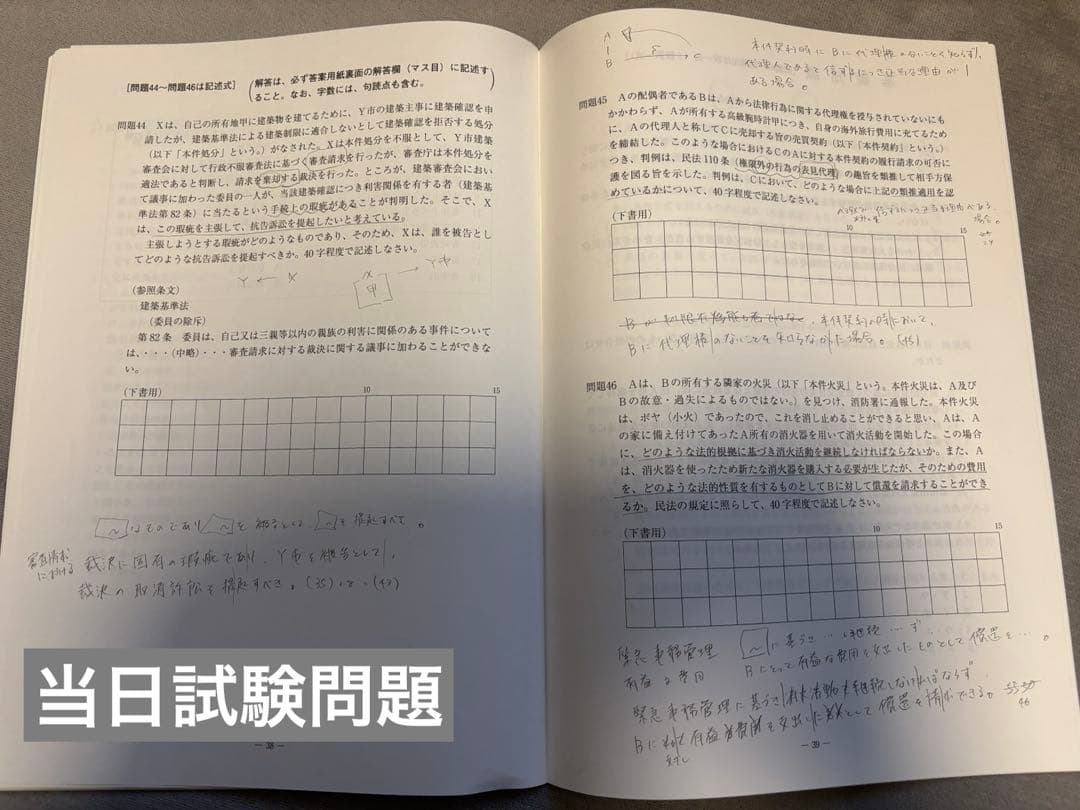 [問題44〜問題46は記述式]
(解答は、必ず答案用紙裏面の解答欄(マス目)に記述す
ること。なお、字数には、句読点も含む。)
問題44 Xは、自己の所有地甲に建築物を建てるために、Y市の建築主事に建築確認を申
請したが、建築基準法による建築制限に適合しないとして建築確認を拒否する処分
(以下「本件処分」という。)がなされた。Xは本件処分を不服として、Y市建築
審査会に対して行政不服審査法に基づく審査請求を行ったが、審査庁は本件処分を
適法であると判断し、請求を棄却する裁決を行った。ところが、建築審査会におい
て議事に加わった委員の一人が、当該建築確認につき利害関係を有する者(建築基
準法第82条)に当たるという手続上の瑕疵があることが判明した。そこで、X
は、この瑕疵を主張して、抗告訴訟を提起したいと考えている。
主張しようとする瑕疵がどのようなものであり、そのため、Xは、誰を被告とし
てどのような抗告訴訟を提起すべきか。40字程度で記述しなさい。
Y ← X
X → Y市
甲
(参照条文)
建築基準法
(委員の除斥)
第82条 委員は、自己又は三親等以内の親族の利害に関係のある事件について
は、・・・(中略)・・・審査請求に対する裁決に関する議事に加わることができな
い。
(下書用)
10 15
〜なものであり 〜を被告として 〜を提起すべき。
審査請求における 裁決に固有の瑕疵であり、Y市を被告として、
裁決の取消訴訟を提起すべき。(35) (43)
当日試験問題
― 38 ―
A
B C
本件契約時にBに代理権のないことを知らず、
代理人であると信ずるにつき正当な理由が
ある場合。
問題45 Aの配偶者であるBは、Aから法律行為に関する代理権を授与されていないにも
かかわらず、Aが所有する高級腕時計甲につき、自身の海外旅行費用に充てるため
に、Aの代理人と称してCに売却する旨の売買契約(以下「本件契約」という。)
を締結した。このような場合におけるCのAに対する本件契約の履行請求の可否に
つき、判例は、民法110条(権限外の行為の表見代理)の趣旨を類推して相手方保
護を図る旨を示した。判例は、Cにおいて、どのような場合に上記の類推適用を認
めているかについて、40字程度で記述しなさい。
(下書用)
場合。
10 15
本件契約の時において、
Bに代理権のないことを知らなかった場合。(45)
問題46 Aは、Bの所有する隣家の火災(以下「本件火災」という。本件火災は、A及び
Bの故意・過失によるものではない。)を見つけ、消防署に通報した。本件火災
は、ボヤ(小火)であったので、これを消し止めることができると思い、Aは、A
の家に備え付けてあったA所有の消火器を用いて消火活動を開始した。この場合
に、どのような法的根拠に基づき消火活動を継続しなければならないか。また、A
は、消火器を使ったため新たな消火器を購入する必要が生じたが、そのための費用
を、どのような法的性質を有するものとしてBに対して償還を請求することができ
るか。民法の規定に照らして、40字程度で記述しなさい。
(下書用)
10 15
緊急事務管理 〜に基づき…継続…ず、
有益な費用 Bにとって有益な費用を支出したものとして償還を…。
緊急事務管理に基づき消火活動を継続しなければならず、
Bに対し有益な費用を支出したとして償還を請求できる。
46
― 39 ―